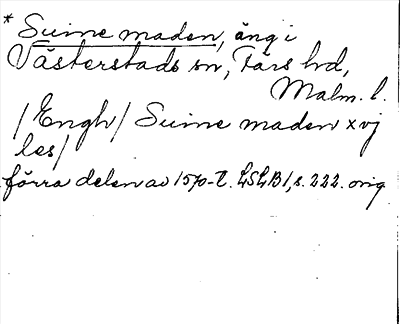 * Suine maden, äng i
Västerstads sn, Färs hd,
Malm. l.
/Engh/ Suine maden xvj
les/
förra delen av 1570-t. LSLB1, s. 222. orig